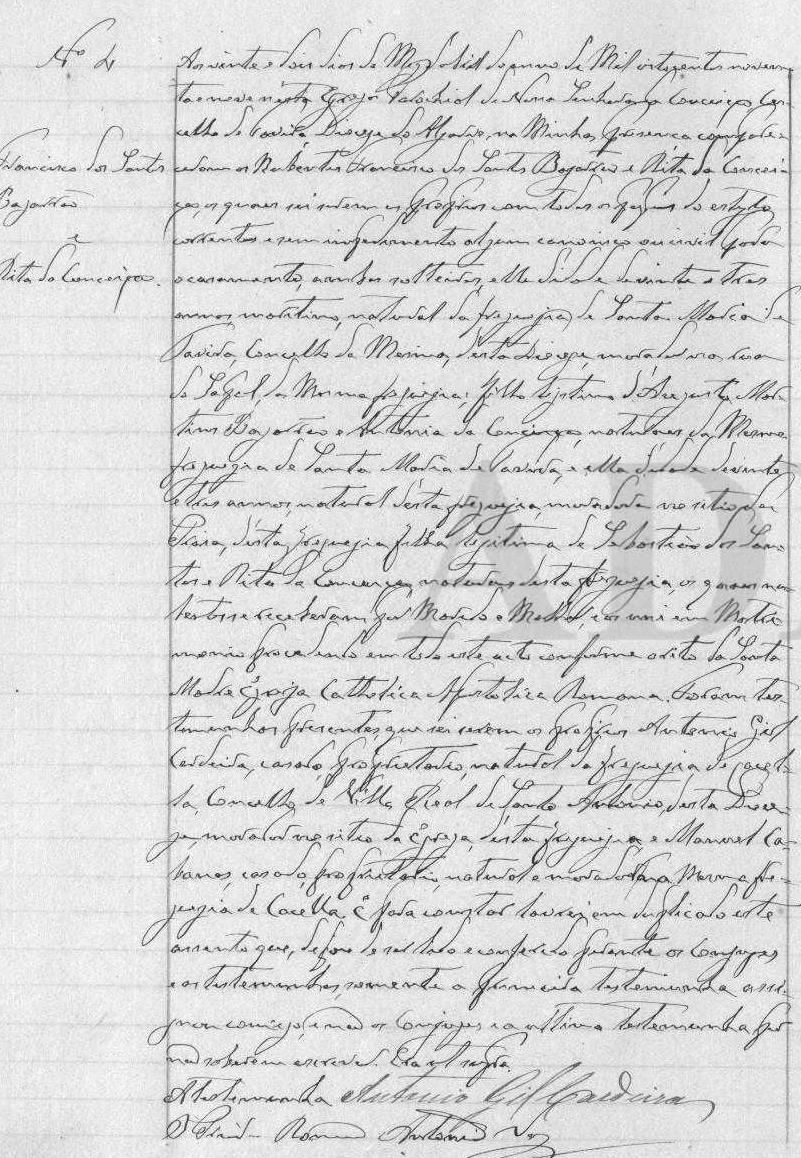 Nº 4
Francisco dos Santos
Bajarrão
e
Rita da Conceição.
Aos vinte e dois dias de Mez d'Abril do anno de Mil oitocentos noven-
ta e nove n'esta Egreja Parochial de Nossa Senhora da Conceição, Con-
celho de Tavira, Diocese do Algarve, na Minha presença compare-
ceram os Nubentes Francisco dos Santos Bajarrão e Rita da Concei-
ção, os quaes sei serem os proprios com todos os papeis do estylo
correntes e sem impedimento algum canonico ou civil para
o casamento, ambos solteiros, elle d'idade de vinte e tres
annos, maritimo, natural da freguezia de Santa Maria de
Tavira, Concelho da Mesma, d'esta Diocese, morador na rua
da mesma freguezia, filho legitimo d'Augusto Mar-
tins Bajarrão e Antonia da Conceição, naturaes da Mesma
freguezia de Santa Maria de Tavira, e ella d'idade de vinte
e tres annos, natural d'esta freguezia, moradora no sitio da
d'esta freguezia, filha legitima de Sebastião dos San-
tos e Rita da Conceição, naturaes desta freguezia, os quaes nu-
bentes se receberam por Marido e Mulher, e os uni em Matri-
monio procedendo em todo este acto conforme o rito da Santa
Madre Egreja Catholica Apostolica Romana. Foram tes-
temunhas presentes, que sei serem os proprios Antonio Gil
Cardeira, casado, proprietario, natural da freguezia de Cacel-
la, Concelho de Villa Real de Santo Antonio, desta Dioce-
se, morador no sitio da Egreja, d'esta freguezia, e Manoel
casado, proprietario, natural e morador na Mesma fre-
guezia de Cacella. E para constar lavrei em duplicado este
assento que, depois de ser lido e conferido perante os conjuges
e as testemunhas, somente a primeira testemunha assi-
gnou comigo, e não os conjuges e a ultima testemunha por
não saberem escrever. Era ut supra.
A testemunha Antonio Gil Cardeira
O Antonio Vaz